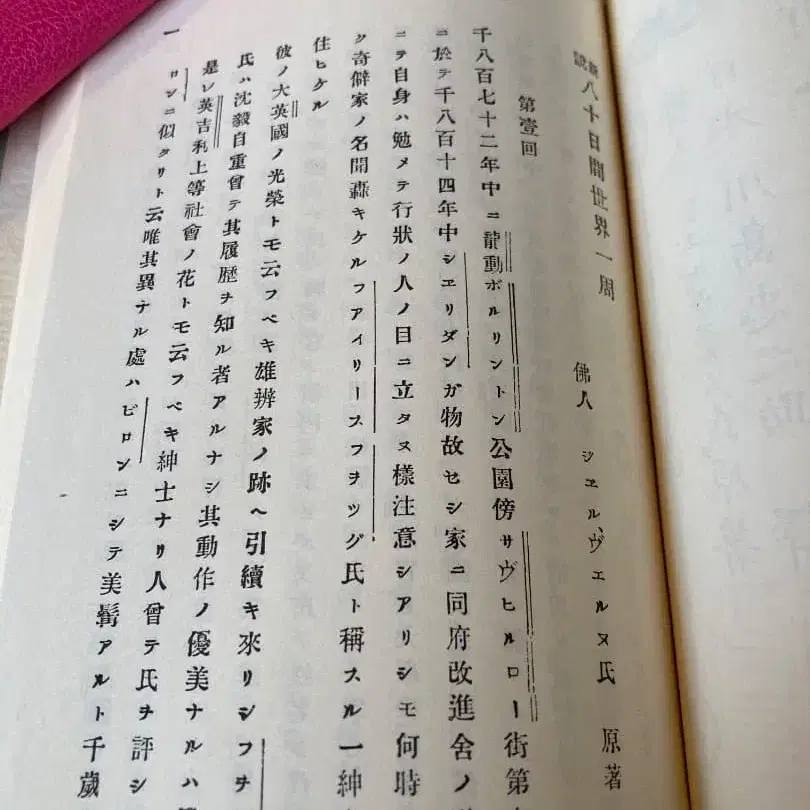 新説 八十日間世界一周
佛人 ジエル、ヴエルヌ氏 原著
第壹回
千八百七十二年中ニ龍動ボルリントン公園傍サヴヒルロー街第
ニ於テ千八百十四年中シエリダンガ物故セシ家ニ同府改進舍ノ
ニテ自身ハ勉メテ行狀ノ人ノ目ニ立タヌ樣注意シアリシモ何時
ク奇僻家ノ名聞轟キケルフアイリースフヲッグ氏ト稱スル一紳
住ヒケル
彼ノ大英國ノ光榮トモ云フベキ雄辨家ノ跡ヘ引續キ來リシフヲ
氏ハ沈毅自重曾テ其履歷ヲ知ル者アルナシ其動作ノ優美ナルハ
是レ英吉利上等社會ノ花トモ云フベキ紳士ナリ人曾テ氏ヲ評シ
ロンニ似タリト云唯其異ナル處ハビロンニシテ美髯アルト千歲
一